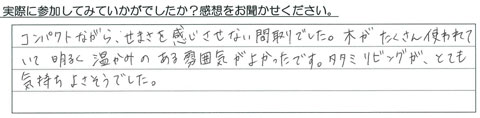 実際に参加してみていかがでしたか？感想をお聞かせください。
コンパクトながら、せまさを感じさせない間取りでした。木がたくさん使われて
いて明るく温かみのある雰囲気がよかったです。タタミリビングが、とても
気持ちよさそうでした。